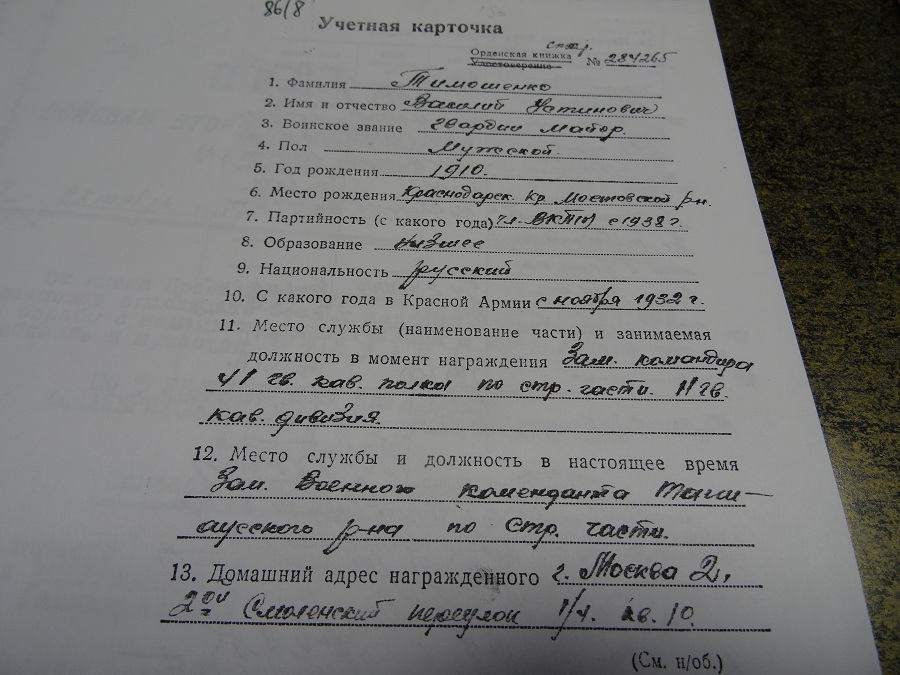 86/8
Учетная карточка
стар.
Орденская книжка
Удостоверение № 284265
1. Фамилия Тимошенко
2. Имя и отчество Василий
3. Воинское звание Гвардии майор.
4. Пол Мужской.
5. Год рождения 1910.
6. Место рождения Краснодарск. Кр. Мостовской р-н.
7. Партийность (с какого года) чл. ВКП(б) с 1938 г.
8. Образование низшее
9. Национальность русский
10. С какого года в Красной Армии с ноября 1932 г.
11. Место службы (наименование части) и занимаемая
должность в момент награждения Зам. командира
41 гв. кав. полка по стр. части. 11 гв.
кав. дивизия.
12. Место службы и должность в настоящее время
Зам. Военного коменданта
р-на по Стр. части.
13. Домашний адрес награжденного г. Москва 2,
2ой Смоленский переулок 1/4. кв. 10.
(См. н/об.)